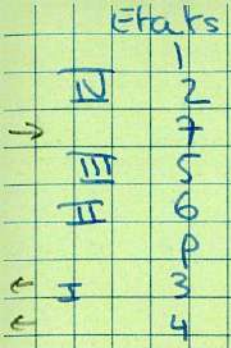 Etats
1
IV 2
→ 7
III 5
II 6
P
← I 3
← 4